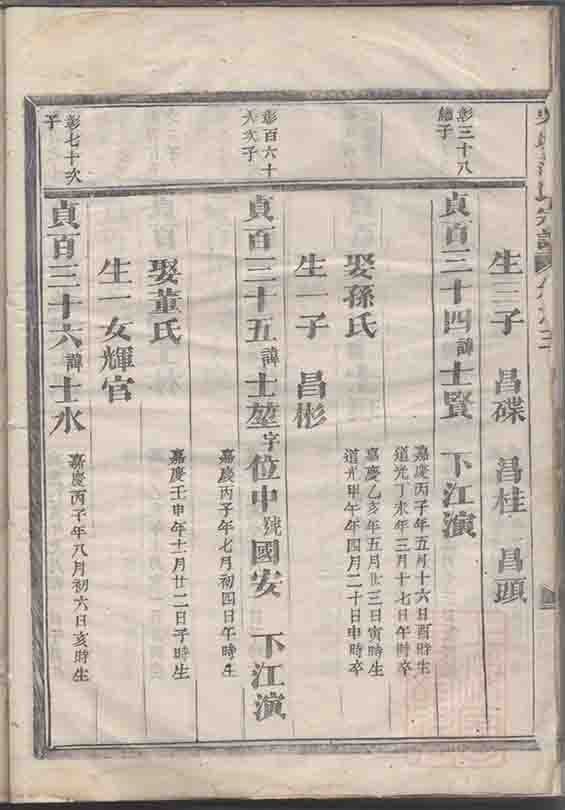 生三子 昌碟 昌桂 昌頭
彰三十八
繼子
貞百三十四諱士賢 下江演
嘉慶丙子年五月十六日酉時生
道光丁未年三月十七日午時卒
娶孫氏
嘉慶乙亥年五月廿三日寅時生
道光甲午年四月二十日申時卒
生一子 昌彬
彰百六十
六次子
貞百三十五諱士堃字位中號國安 下江演
嘉慶丙子年七月初四日午時生
娶董氏
嘉慶壬申年十一月廿二日子時生
生一女輝官
彰七十次
子
貞百三十六諱士水
嘉慶丙子年八月初六日亥時生